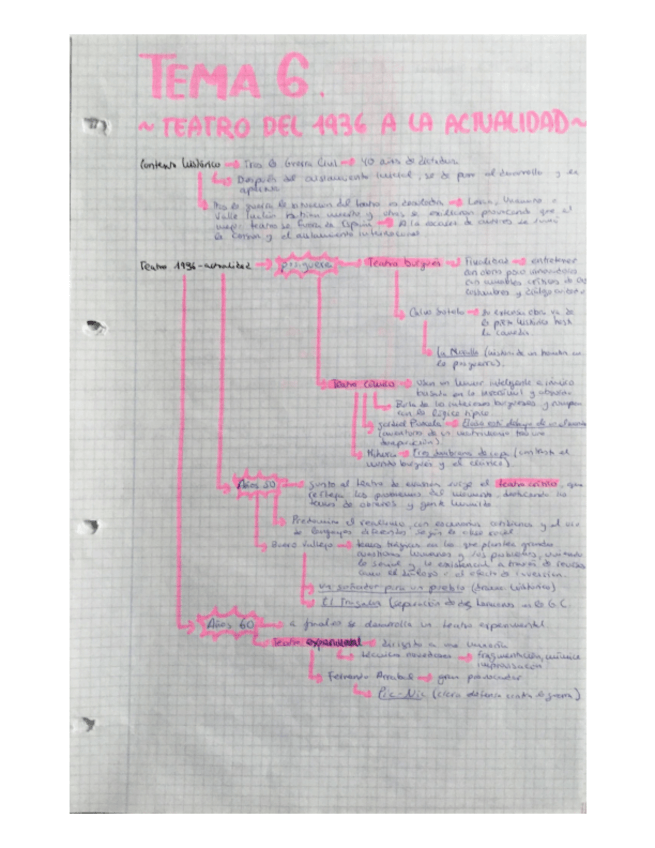 TEMA 6.
~ TEATRO DEL 1936 A LA ACTUALIDAD ~
Contexto histórico → Tras la Guerra Civil → 40 años de dictadura
Después del aislamiento inicial, se da paso al desarrollo y la
apertura
Tras la guerra la situación del teatro es desoladora → Lorca, Unamuno o
Valle Inclán habían muerto y otros se exiliaron provocando que el
mejor teatro se fuera de España → A la escasez de autores se sumó
la censura y el aislamiento internacional
Teatro 1936-actualidad → posguerra → Teatro burgués → Finalidad → entretener
con obras poco
con amables críticas de las
costumbres y
Calvo Sotelo → Su extensa obra va de
la pieza histórica hasta
la comedia.
La Muralla (
la posguerra).
Teatro cómico → Usan un humor inteligente e irónico
basado en lo irracional y absurdo
Burla de las costumbres burguesas y rompen
con la lógica
Jardiel Poncela → Eloísa está debajo de un almendro
(aventuras de un
desaparición).
Mihura → Tres sombreros de copa (contrasta el
mundo burgués y el cómico)
Años 50 → Junto al teatro de evasión surge el teatro crítico, que
refleja los problemas del momento, destacando los
temas de obreros y gente humilde
Predomina el realismo, con escenarios cotidianos y el uso
de lenguajes diferentes según la clase social
Buero Vallejo → temas trágicos en los que plantea grandes
cuestiones humanas y sus problemas,
lo social y lo existencial a través de recursos
como el diálogo o el efecto de inmersión.
Un soñador para un pueblo (drama histórico)
El Tragaluz (separación de dos hermanos en la G.C.
Años 60 → a finales se desarrolla un teatro experimental
Teatro experimental → dirigido a una minoría
técnicas novedosas → fragmentación, mímica
improvisación
Fernando Arrabal → gran provocador
Pic-Nic (clara defensa contra la guerra)